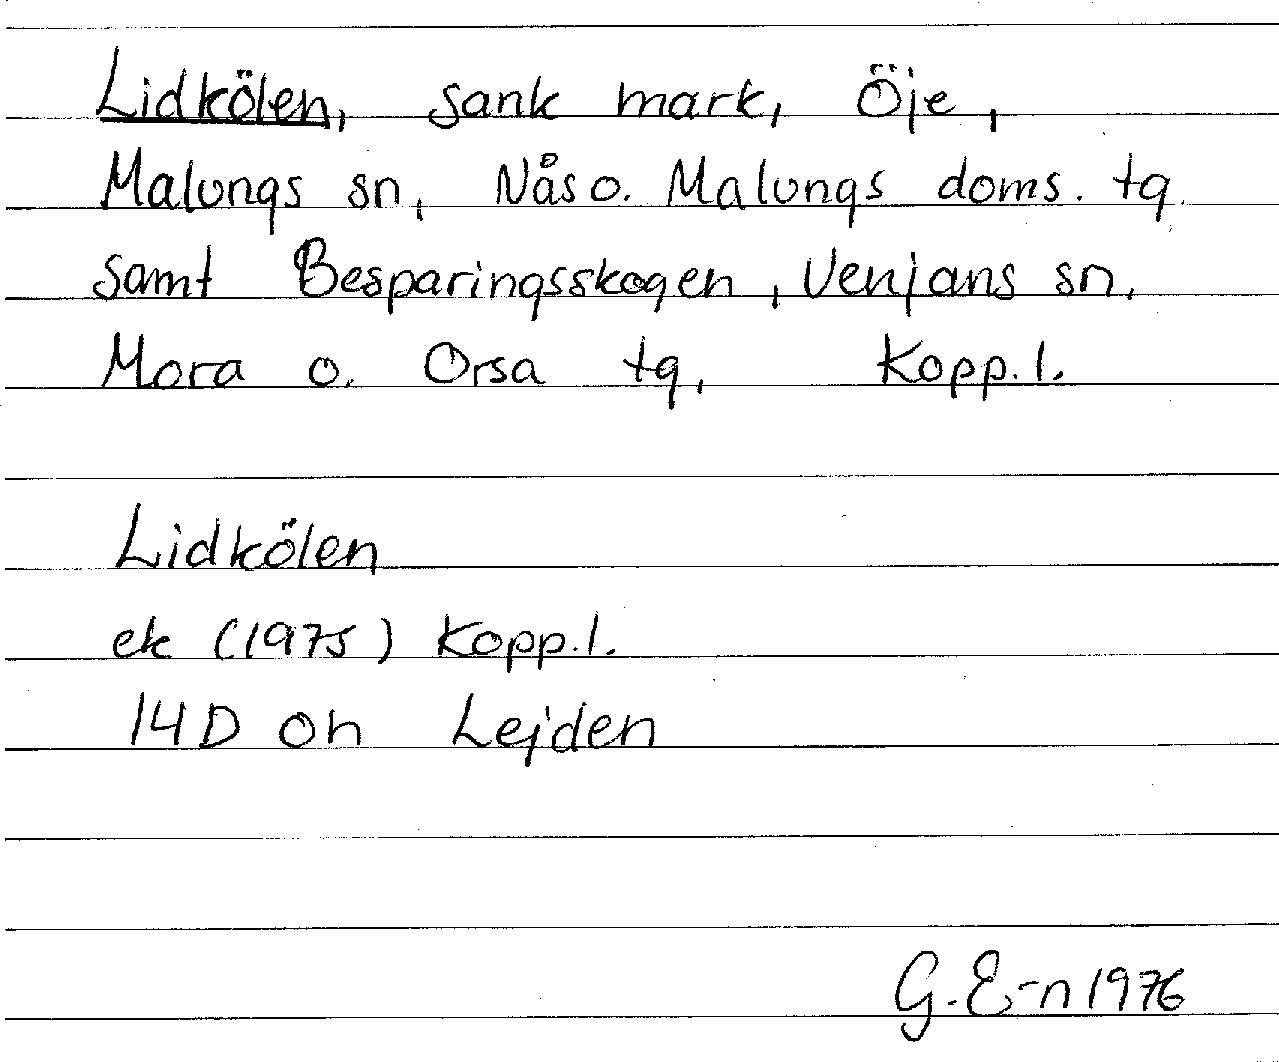 Lidkölen, sank mark, Öje,
Malungs sn, Nås o. Malungs doms. tg.
samt Besparingsskogen, Venjans sn,
Mora o. Orsa tg, Kopp. l.
Lidkölen
ek (1975) Kopp. l.
14D oh Lejden
G. E-n 1976